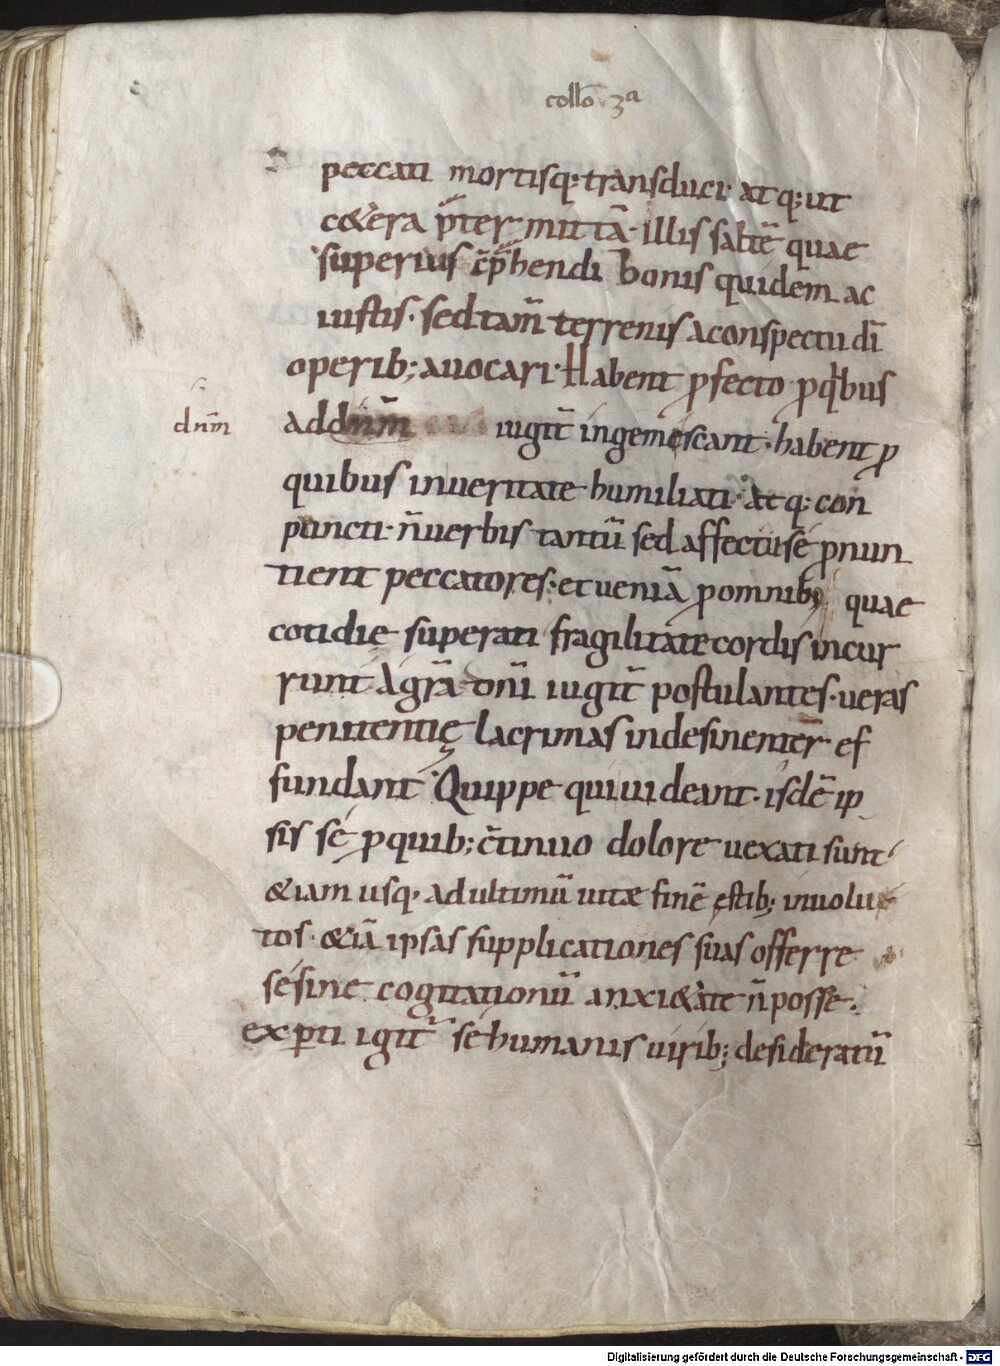 collo 3ª
peccati mortisq; transduci· atq; ut
c&era p̄ter mittā· illis saltē quae
superius c̄p̄hendi bonis quidem ac
iustis· sed tam̄ terrenis a conspectu dī
operib; auocari· Habent p̲fecto p̲ qͥbus
dnm̄
ad dnm̄ iugit̄ ingemescant· habent p̲
quibus in ueritate humiliati· atq; con
puncti· n̄ uerbis tantū sed affectu sé p̲nun
tient peccatores· et ueniā p̲ omnib; quae
cotidie superati fragilitate cordis incur
runt A grā dnī iugit̄ postulantes· ueras
penitentię lacrimas indesinenter ef
fundant· Quippe qui uideant· isdē ip
sis sé p̲ quib; c̄tinuo dolore uexati sunt
&iam usq· ad ultimū uitæ finē ęstib; inuolu
tos· &iā ipsas supplicationes suas offerre
sé sine cogitationū anxi&ate n̄ posse·
exp̲ti igit̄ sé humanis uirib; desideratū
Digitalisierung gefördert durch die Deutsche Forschungsgemeinschaft - DFG